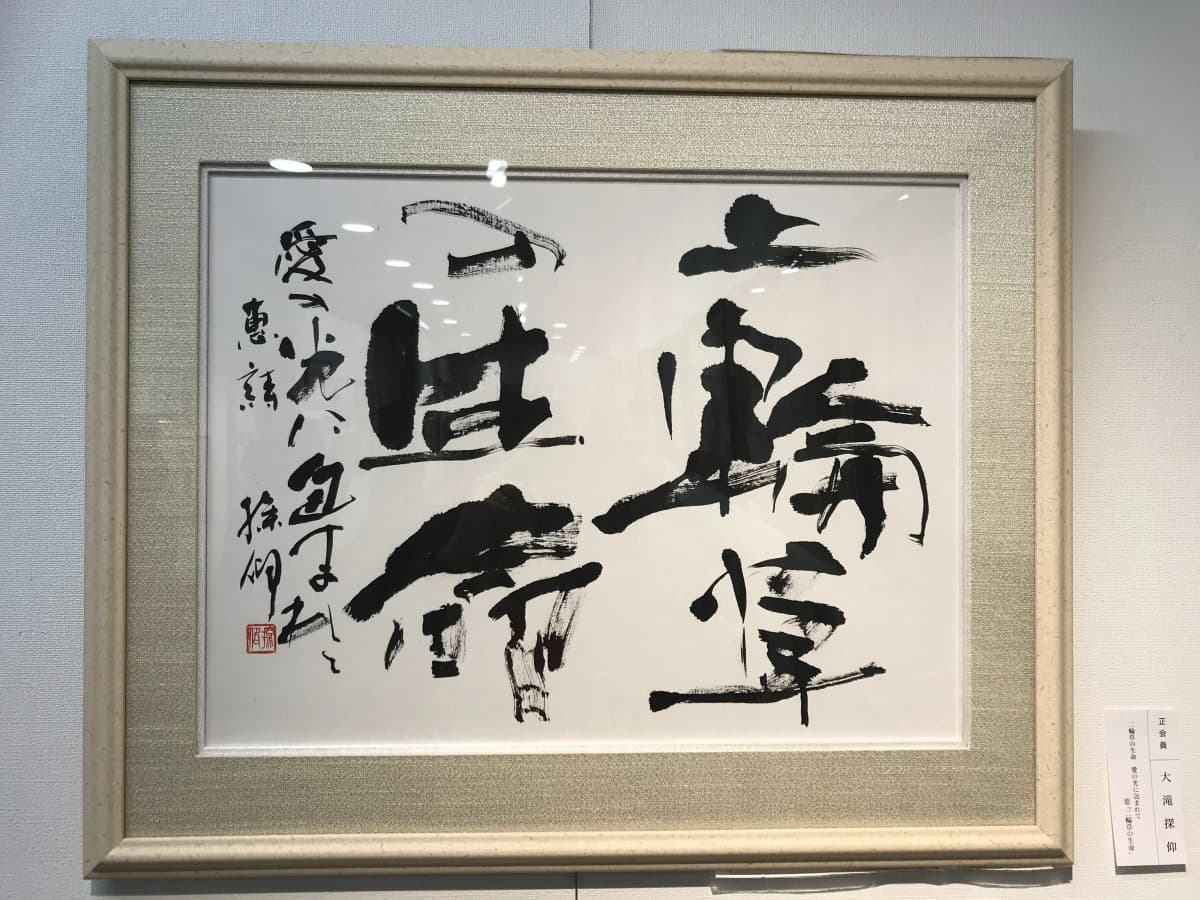 二輪草
の生命
愛の光に包まれて
惠 詩
探仰
正会員 大滝探仰
二輪草の生命 愛の光に包まれて
「二輪草の生命」